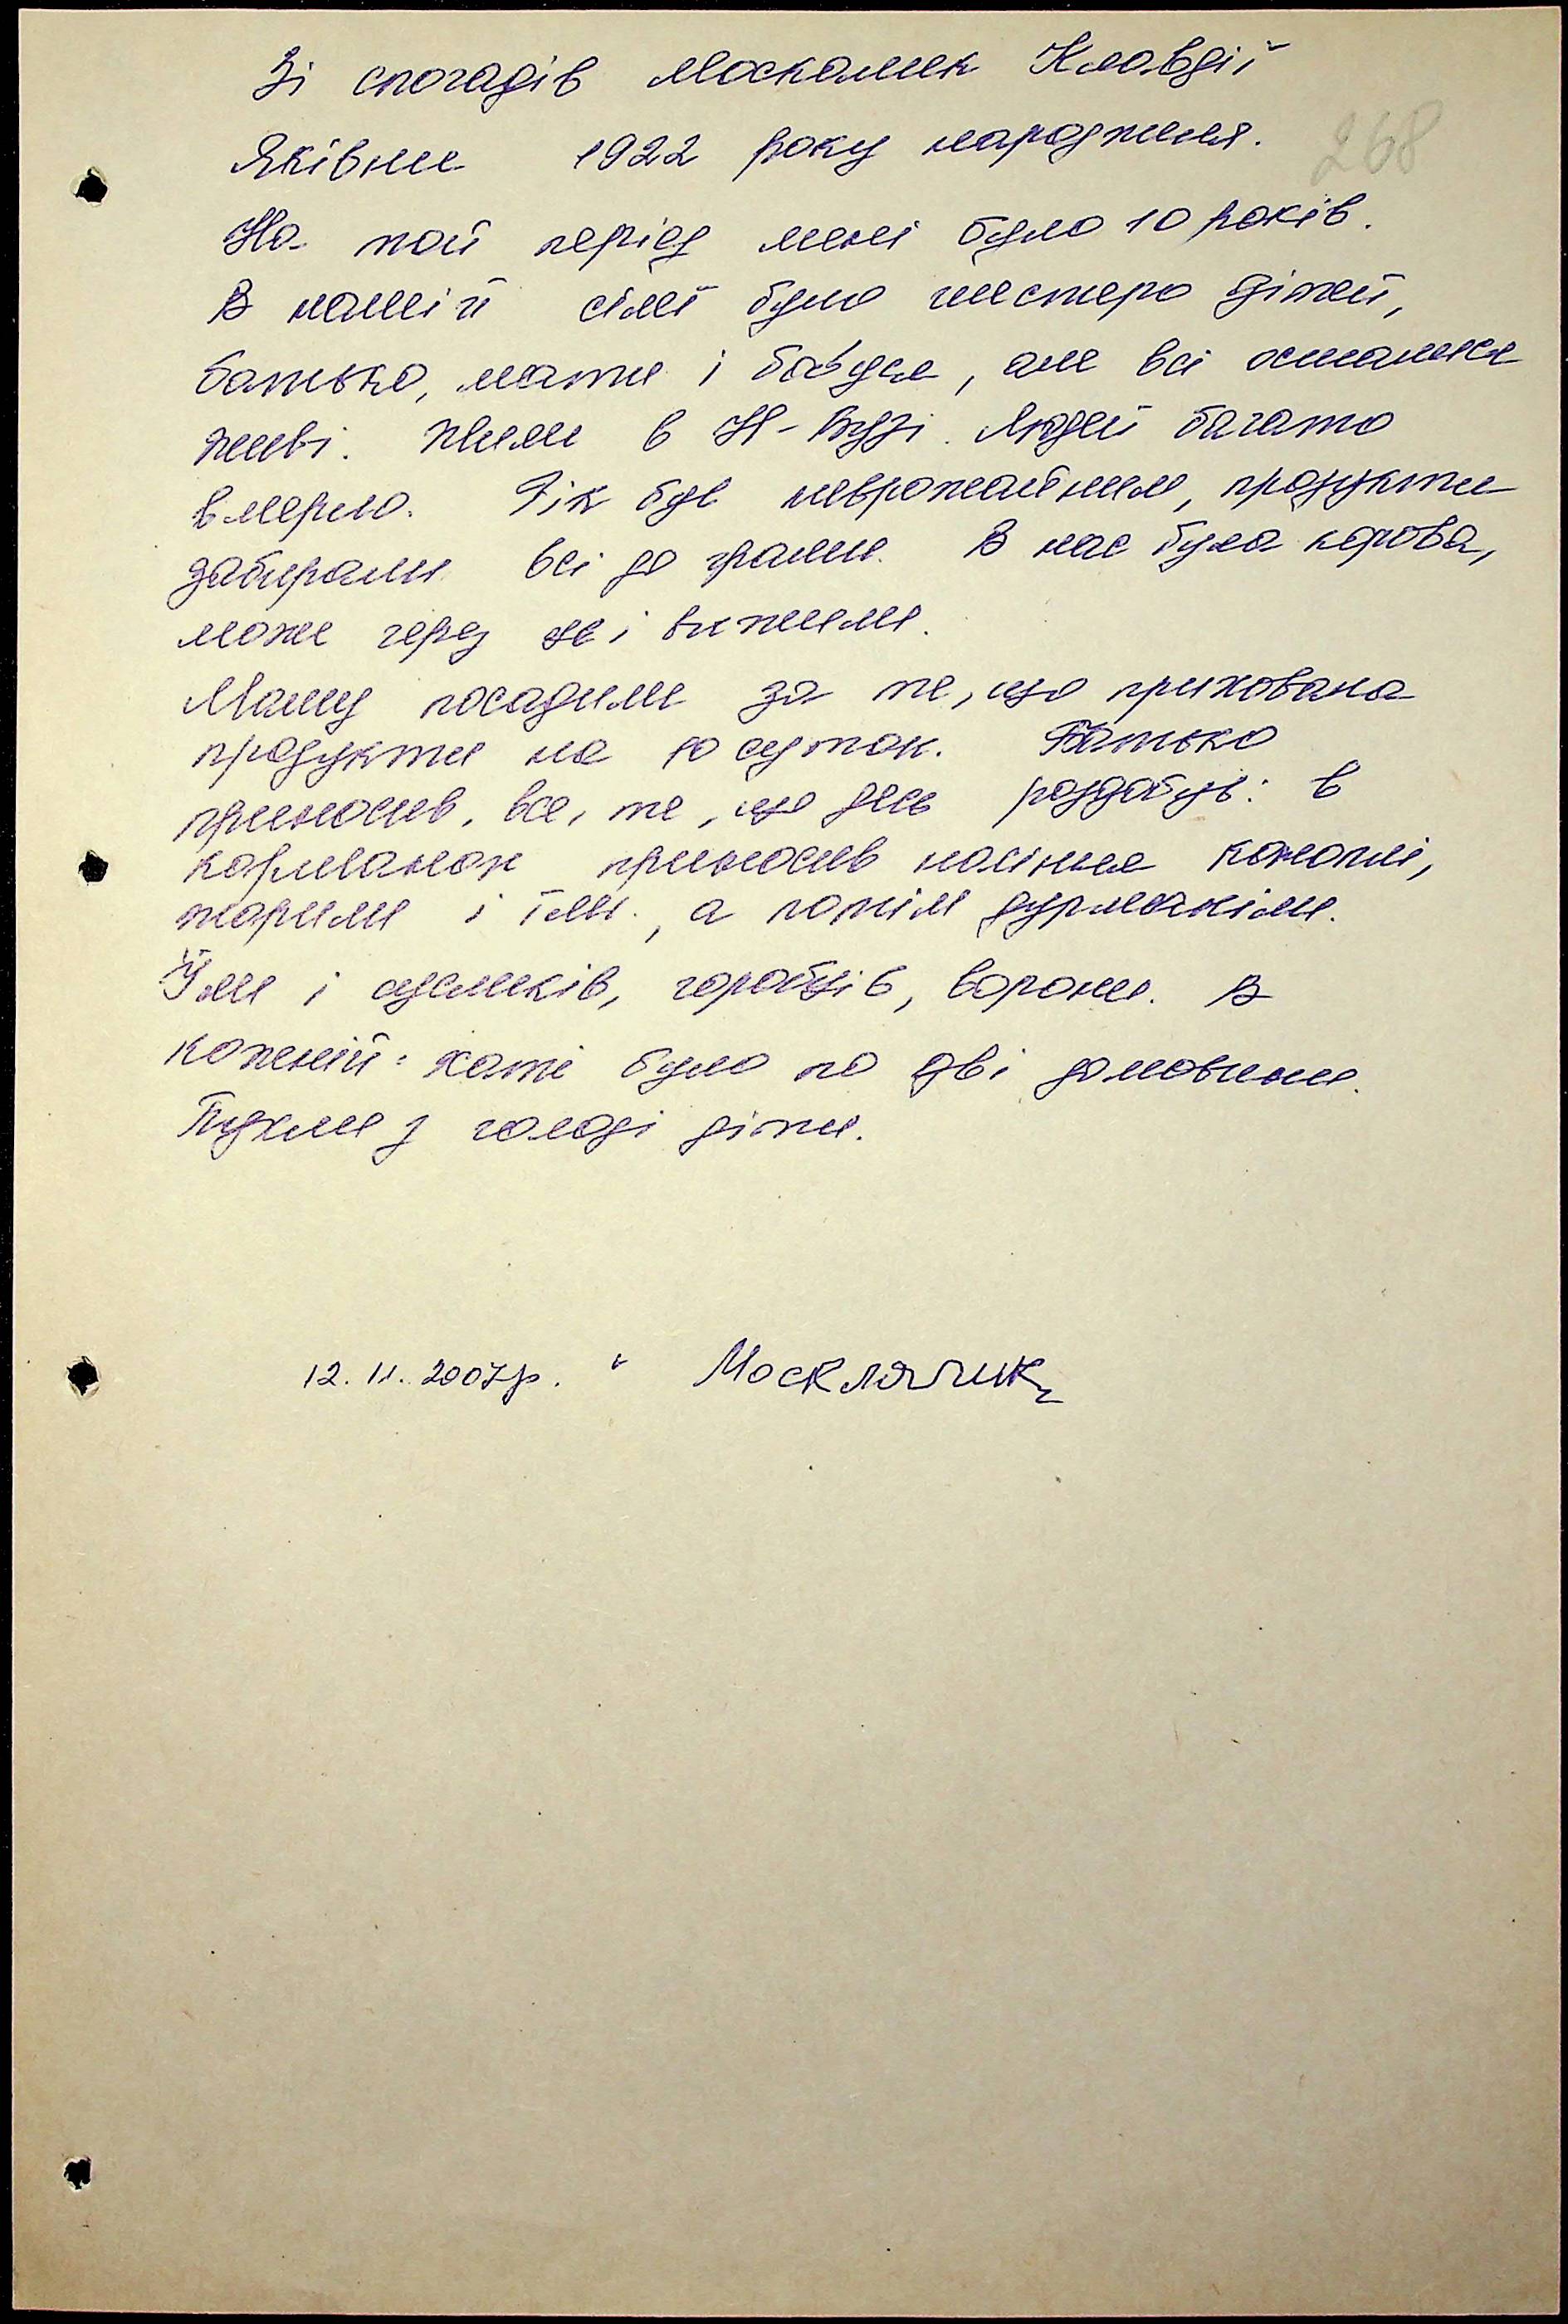 Зі спогадів Москалик Клавдії
Яківни 1922 року народження.
268
На той період мені було 10 років.
В нашій сімї було шестеро дітей,
батько, мати і бабуся, але всі осталися
живі. Жили в Н-Бузі. Людей багато
вмерло. Рік був неврожайним, продукти
забирали всі до грами. В нас була корова,
може через це і вижили.
Маму посадили за те, що прихована
продукти на 10 суток. Батько
приносив, все, те, що десь роздобув: в
карманах приносив насіння коноплі,
жарили і їли, а потім дурманіли.
Їли і сусликів, горобців, ворони. В
кожній хаті було по дві домовини.
Пухли з голоді діти.
12.11.2007р.